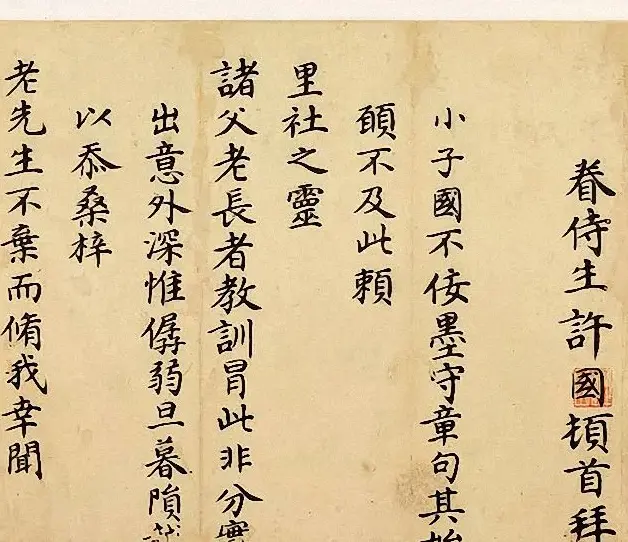 眷侍生許國頓首拜
小子國不佞墨守章句其始
願不及此賴
里社之靈
諸父老長者教訓冒此非分實
出意外深惟孱弱旦暮隕
以忝桑梓
老先生不棄而脩我幸聞